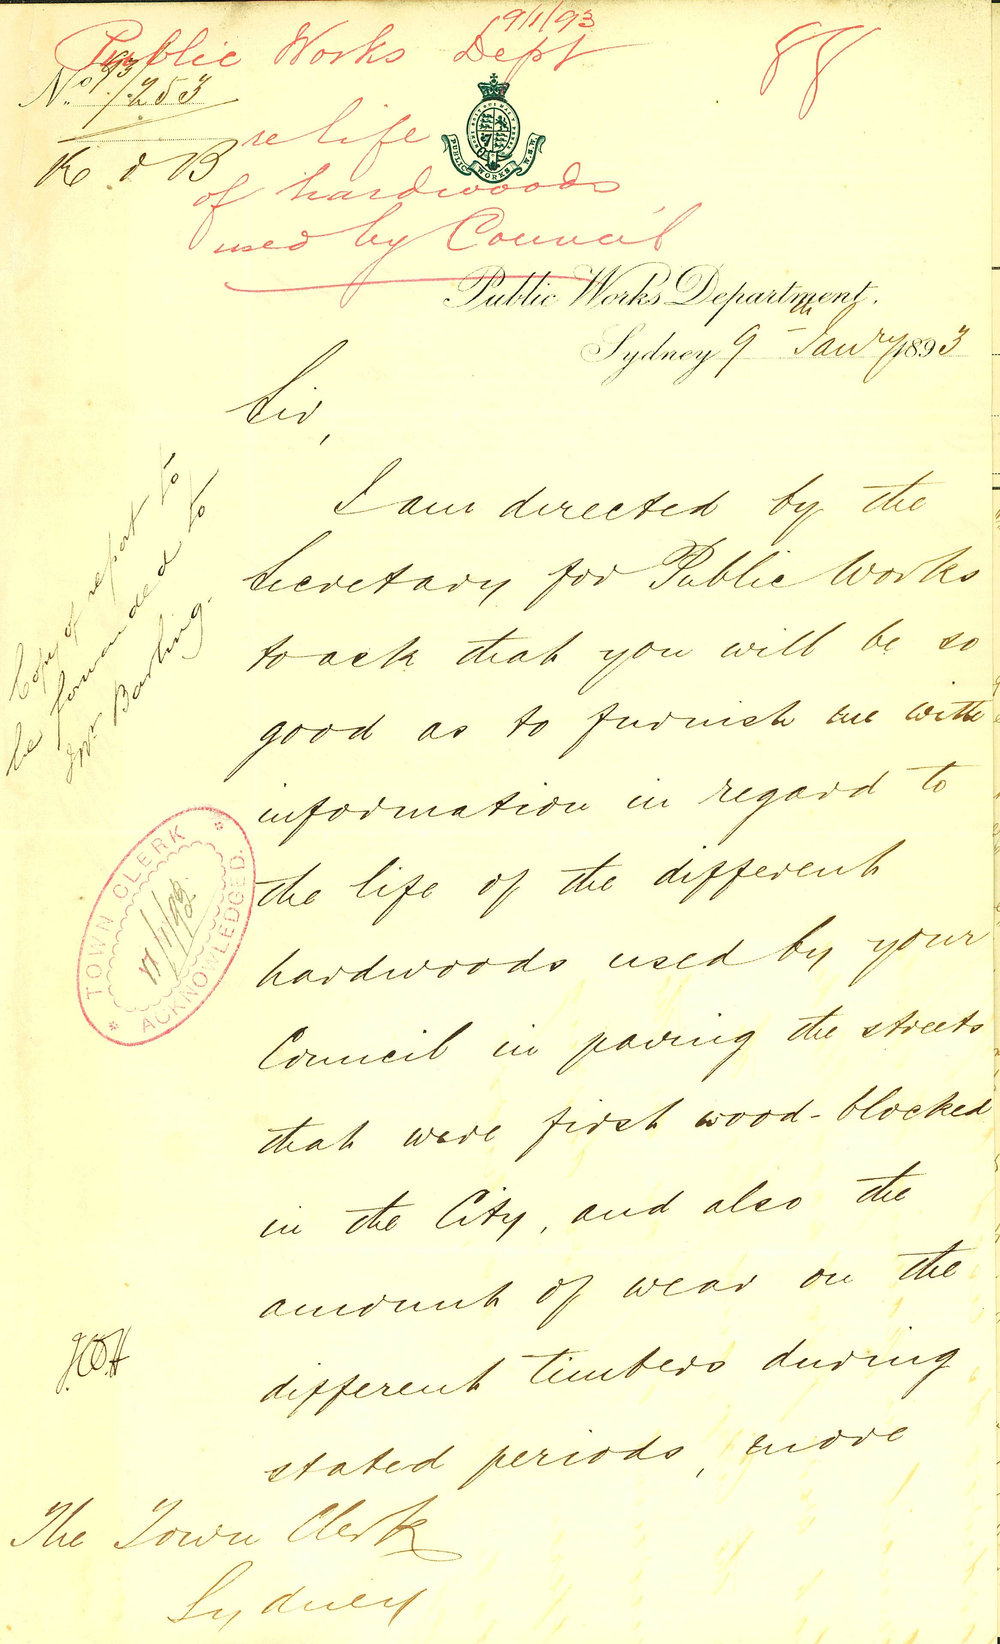 9/1/93
Public Works Dept
88
No. 93/253
R & B
re life
of hardwoods
used by Council
PUBLIC WORKS N.S.W.
Public Works Department.
Sydney 9th Janry 1893
Sir,
I am directed by the
Secretary for Public Works
to ask that you will be so
good as to furnish me with
information in regard to
the life of the different
hardwoods used by your
Council in paving the streets
that were first wood-blocked
in the City, and also the
amount of wear on the
different timbers during
stated periods, more
The Town Clerk
Sydney
Copy of report to
be forwarded to
Mr Barling.
TOWN CLERK
11/1/93
ACKNOWLEDGED.